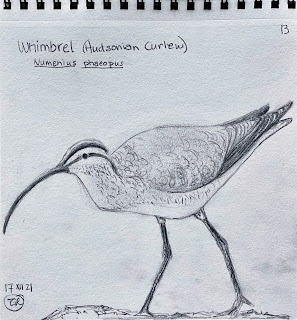 13
Whimbrel (Hudsonian Curlew)
Numenius phaeopus
17 XII 21